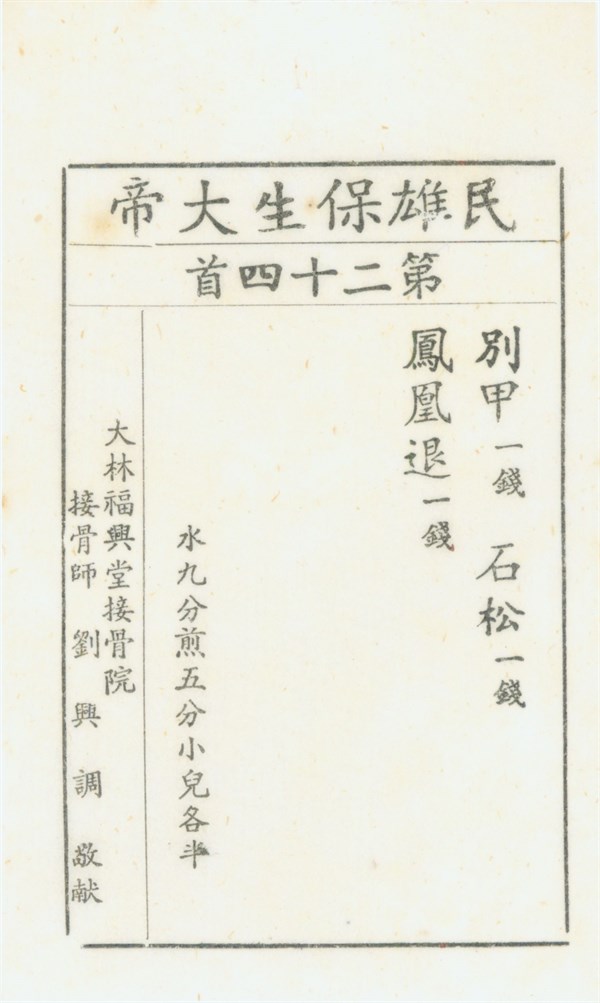 民雄保生大帝
第二十四首
別甲一錢 石松一錢
鳳凰退一錢
水九分煎五分小兒各半
大林福興堂接骨院
接骨師 劉興調 敬献